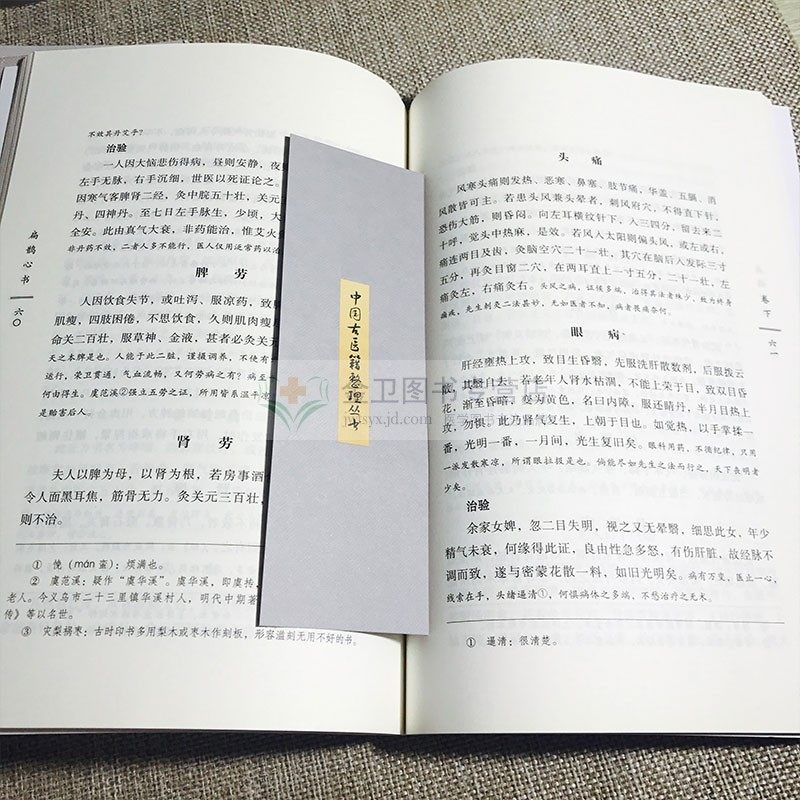 不效其丹艾乎?
治验
一人因大恼悲伤得病,昼则安静,夜
左手无脉,右手沉细,世医以死证论之。
因寒气客脾肾二经,灸中脘五十壮,关元
丹、四神丹。至七日左手脉生,少顷,大
全安。此由真气大衰,非药能治,惟艾火
非丹药不效,二者人多不能行,医人仅用泛常药以治
脾 劳
人因饮食失节,或吐泻、服凉药,致
肌瘦,四肢困倦,不思饮食,久则肌肉瘦
命关二百壮,服草神、金液,甚者必灸关元
天之本牌是也。人能于此二脏,谨摄调养,不使有
运行,荣卫贯通,气血流畅,又何劳病之有?病至
何由得生。虞范溪②强立五劳之证,所用皆系温平凉
是贻害后人。
肾 劳
夫人以脾为母,以肾为根,若房事酒
令人面黑耳焦,筋骨无力。灸关元三百壮,
则不治。
① 悗(mán 蛮):烦满也。
② 虞范溪:疑作“虞华溪”。虞华溪,即虞抟,
老人。今义乌市二十三里镇华溪村人,明代中期著
传》等以名世。
③ 灾梨祸枣:古时印书多用梨木或枣木作刻板,形容滥刻无用不好的书。
扁鹊心书
六〇
中国古医籍整理丛书
金卫图书专营店
jwtsyx.jd.com
头 痛
风寒头痛则发热、恶寒、鼻塞、肢节痛,华盖、五膈、消
风散皆可主。若患头风兼头晕者,刺风府穴,不得直下针,
恐伤大筋,则昏闷。向左耳横纹针下,入三四分,留去来二
十呼,觉头中热麻,是效。若风入太阳则偏头风,或左或右,
痛连两目及齿,灸脑空穴二十一壮,其穴在脑后入发际三寸
五分,再灸目窗二穴,在两耳直上一寸五分,二十一壮,左
痛灸左,右痛灸右。头风之病,证候多端,治得其法者殊少,致为终身
痼疾,先生刺灸二法甚妙,无如医者不知,病者畏痛奈何。
眼 病
肝经壅热上攻,致目生昏翳,先服洗肝散数剂,后服拨云
散,其翳自去。若老年人肾水枯涸,不能上荣于目,致双目昏
花,渐至昏暗,变为黄色,名曰内障,服还睛丹,半月目热上
攻,勿惧。此乃肾气复生,上朝于目也。如觉热,以手掌揉一
番,光明一番,一月间,光生复旧矣。眼科用药,不循纪律,只用
一派发散寒凉,所谓眼拉圾是也。倘能尽如先生之法而行之,天下丧明者
少矣。
治验
余家女婢,忽二目失明,视之又无晕翳,细思此女,年少
精气未衰,何缘得此证,良由性急多怒,有伤肝脏,故经脉不
调而致,遂与密蒙花散一料,如旧光明矣。病有万变,医止一心,
线索在手,头绪逼清①,何惧病体之多端,不愁治疗之无术。
① 逼清:很清楚。
卷下
六一